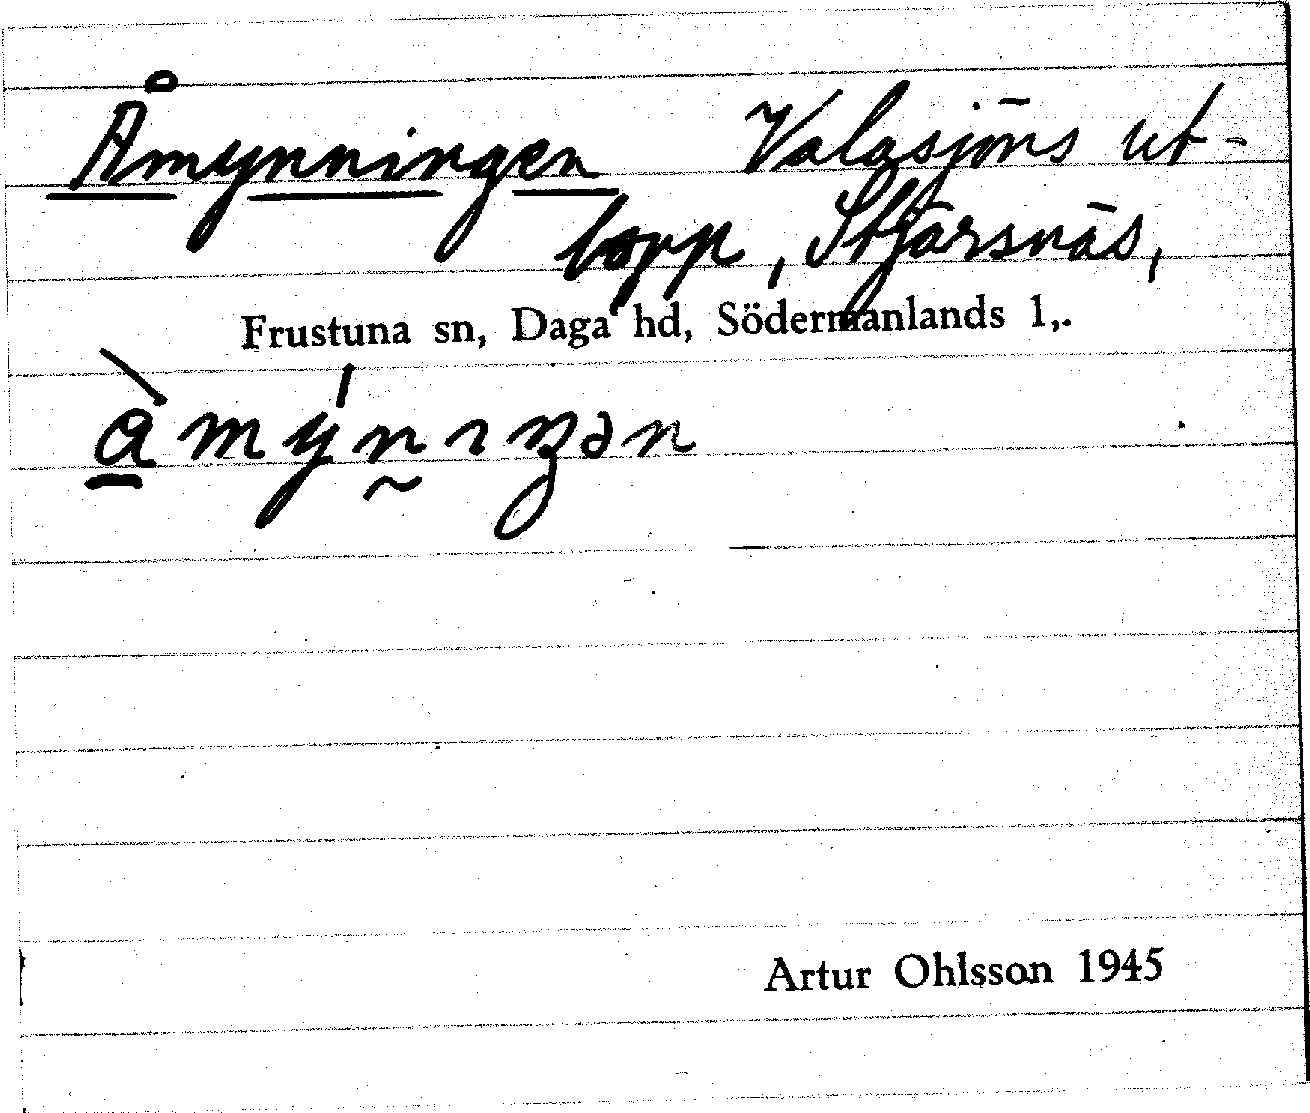 Åmynningen Valasjöns ut-
lopp, Stjärsnäs,
Frustuna sn, Daga hd, Södermanlands l,.
Artur Ohlsson 1945